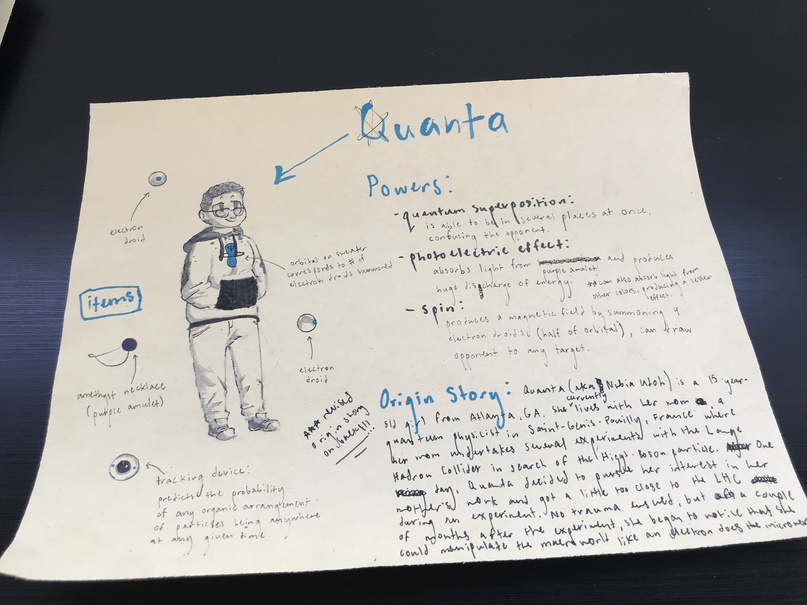 Quanta
Powers:
- quantum superposition:
is able to be in several places at once,
confusing the opponent.
- photoelectric effect:
absorbs light from and produces
purple amulet
huge discharge of energy.
*can also absorb light from
other colors, producing a lesser
effect.
- spin:
produces a magnetic field by summoning 4
electron droids (half of orbital), can draw
opponent to any target.
electron
droid
orbital on sweater
corresponds to # of
electron droids summoned
items
electron
droid
amethyst necklace
(purpose amulet)
tracking device:
predicts the probability
of any organic arrangement
of particles being anywhere
at any given time
*** revised
origin story
on back!!!
Origin Story: Quanta (aka Nubia Utoh) is a 15-year-
old girl from Atlanta, GA. she lives with her mom a
currently
quantum physicist in Saint-Genis-Pouilly, France where
her mom undertakes several experiments with the Large
Hadron Collider in search of the Higgs-Boson particle. One
day, Quanda decided to pursue her interest in her
mother's work and got a little too close to the LHC
during an experiment. No trauma ensued, but a couple
of months after the experiment, she began to notice that she
could manipulate the macroworld like an electron does the